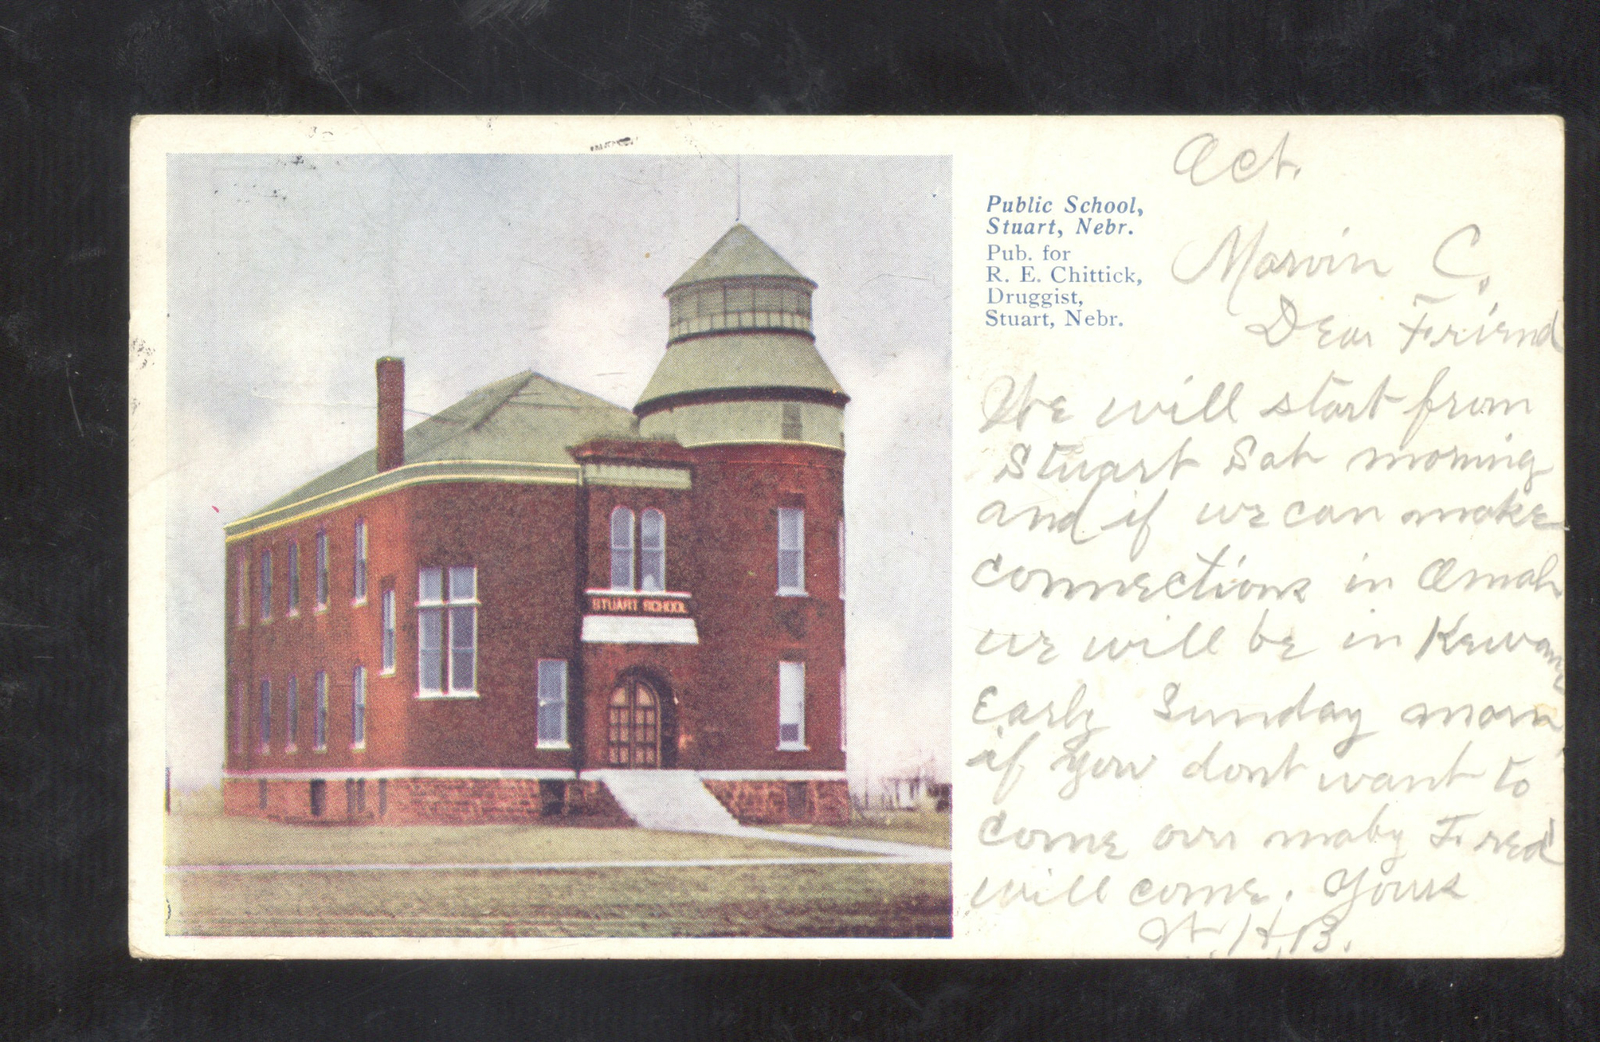 STUART SCHOOL
Public School,
Stuart, Nebr.
Pub. for
R. E. Chittick,
Druggist,
Stuart, Nebr.
Oct.
Marvin C.
Dear Friend
We will start from
Stuart Sat morning
and if we can make
connections in Omah
we will be in Kewanee
Early Sunday morn
if you dont want to
come over maby Fred
will come. Yours
W.H.B.